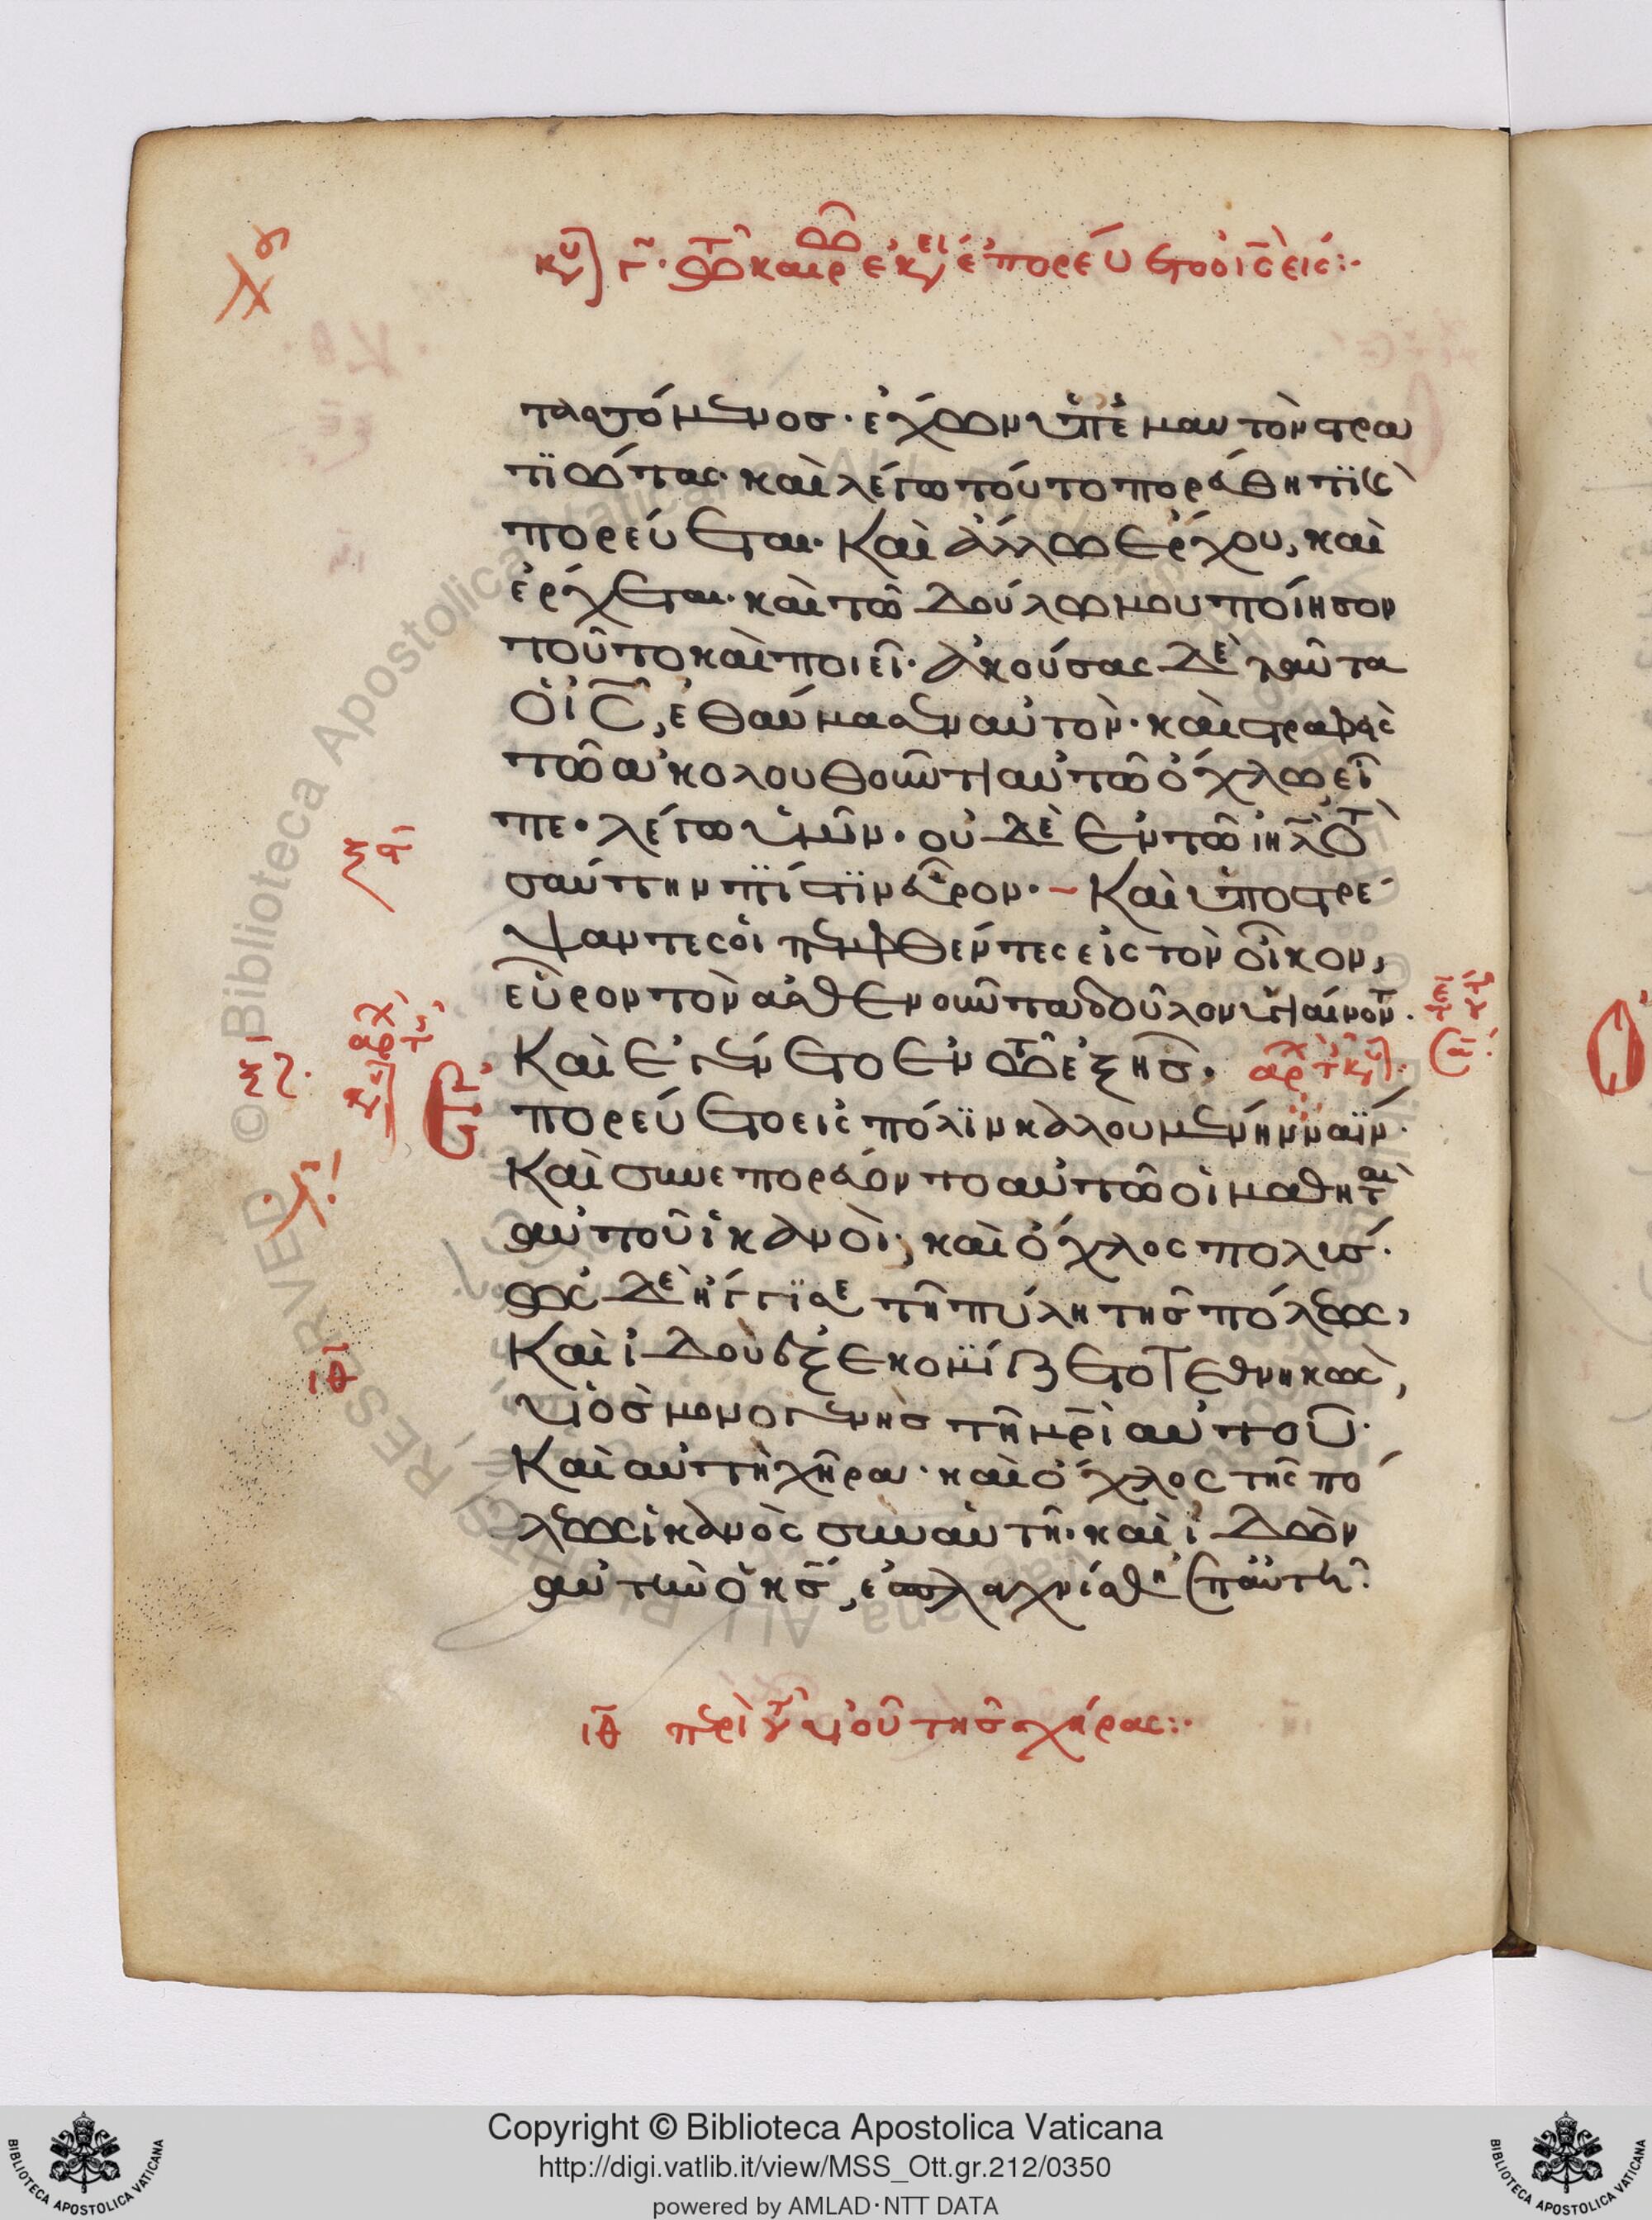 κυ γ. τω καιρ εκει επορευετο ο ις εις:-
τασσόμενος· ἔχων ὑπ' ἐμαυτὸν στρα
τιώτας· καὶ λέγω τούτο πορεύθητι κ
πορεύεται· Καὶ ἄλλω ἔρχου, καὶ
ἔρχεται· καὶ τῶ δούλω μου ποίησον
τοῦτο καὶ ποιεῖ· ἀκούσας δὲ ταῦτα
Ὁ ΙC, ἐθαύμασεν αὐτὸν· καὶ στραφεὶς
τῶ ἀκολουθοῦντι αὐτῶ ὄχλω εἶ
πε· λέγω ὑμῖν· οὐδὲ ἐν τῶ ιηλ το
σαύτην πίστιν εὗρον·– Καὶ ὑποστρέ
ψαντες οἱ πεμφθέντες εἰς τὸν οἶκον,
εὗρον τὸν ἀσθενοῦντα δοῦλον ὑγιαίνοντ·
Καὶ ἐγένετο ἐν τῶ ἑξῆς, ἐ
πορεύετο εἰς πόλιν καλουμένην ναΐν·
Καὶ συνεπορεύοντο αὐτῶ οἱ μαθηταὶ
αὐτοῦ ἱκανοὶ, καὶ ὄχλος πολύς·
ὡς δὲ ἤγγισε τῆ πύλη τῆς πόλεως,
Καὶ ἰδοὺ ἐξεκομίζετο τεθνηκὼς,
υἱὸς μονογενὴς τῆ μρι αὐτοῦ·
Καὶ αὐτὴ χήρα· καὶ ὄχλος τῆς πό
λεως ἱκανὸς σὺν αὐτῆ· καὶ ἰδὼν
αὐτὴν ὁ κς, ἐσπλαγχνίσθη ἐπ' αὐτῆ·
ξα
ξς
ιθ
ιθ περὶ τοῦ υἱοῦ τῆς χήρας:·
Copyright © Biblioteca Apostolica Vaticana
http://digi.vatlib.it/view/MSS_Ott.gr.212/0350
powered by AMLAD·NTT DATA
BIBLIOTECA APOSTOLICA VATICANA
BIBLIOTECA APOSTOLICA VATICANA